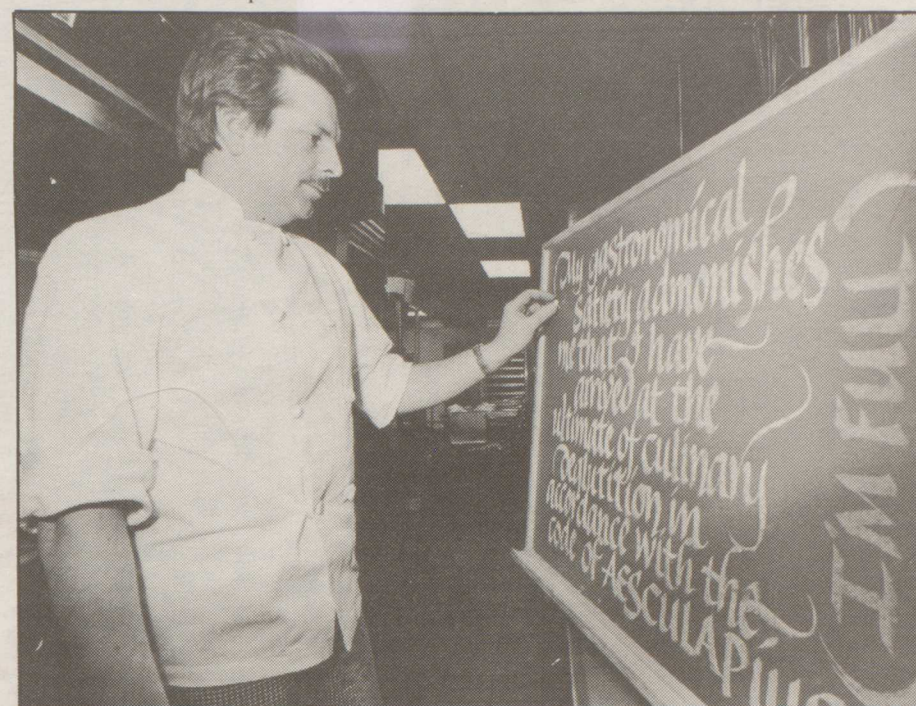 My gastronomical
satiety admonishes
me that I have
arrived at the
ultimate of culinary
deglutition in
accordance with the
code of AESCULAPIUS
(I'M FULL)